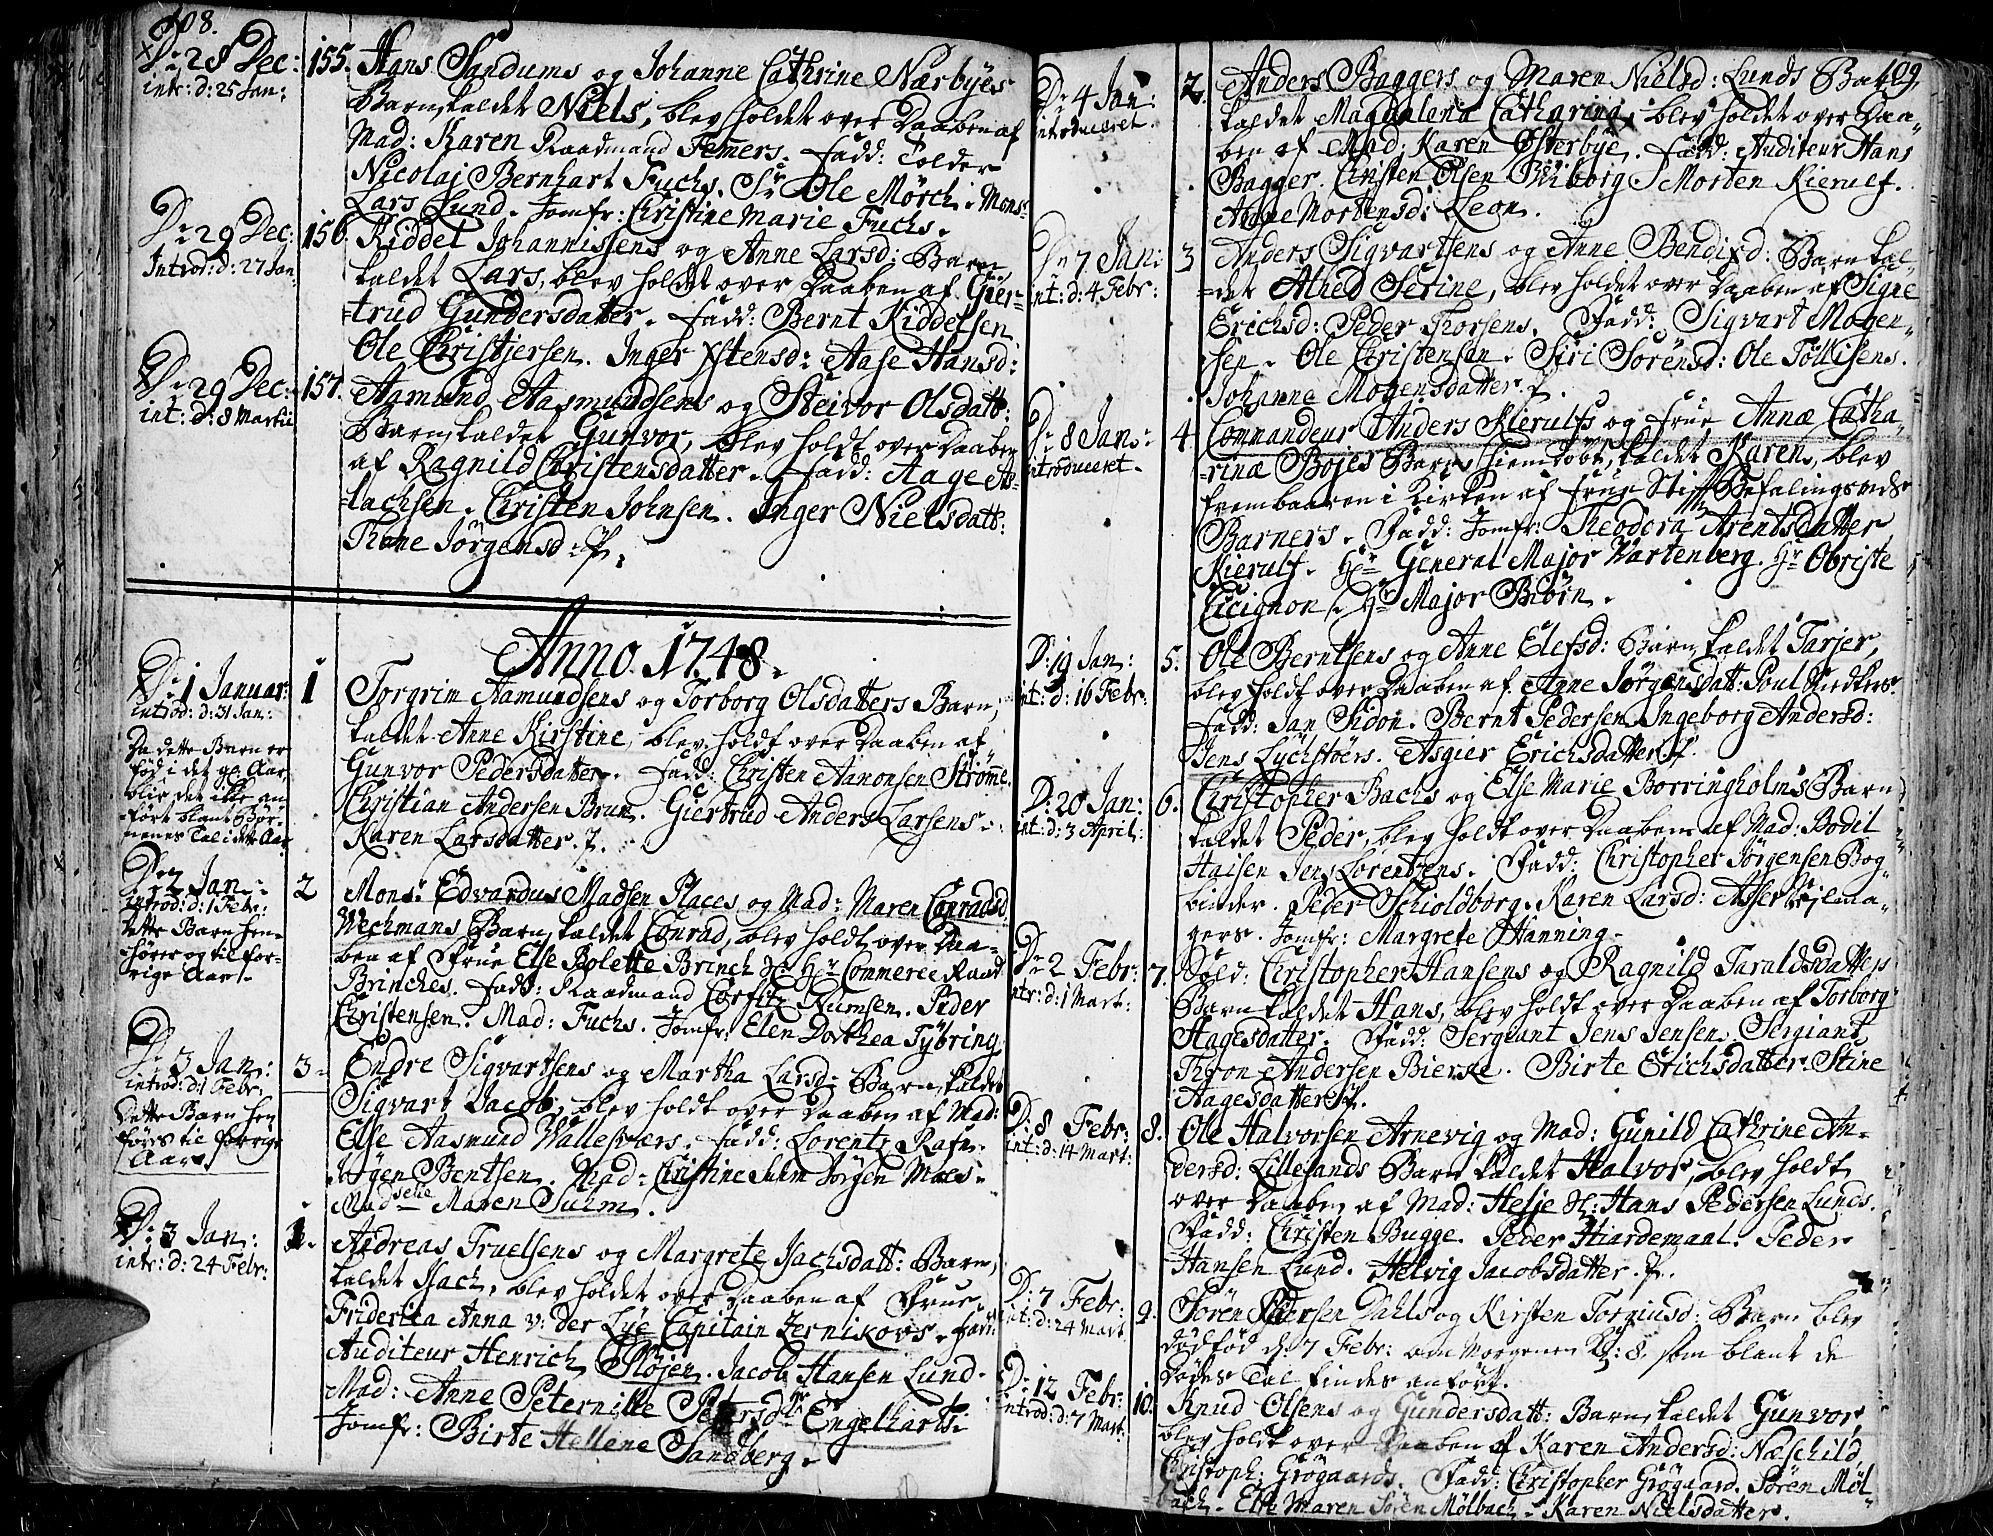 108.
D: 28 Dec:
intr: d: 25 Jan:
155. Hans Sandums og Johanne Cathrine Nærbyes
Barn, kaldet Niels, blev holdet over Daaben af
Mad: Karen Raadmand Femers. Fadd: Tolder
Nicolaj Bernhart Fuchs. Sr Ole Mörch. Mons:
Lars Lund. Jomfr: Christine Marie Fuchs.
D: 29 Dec:
Introd: d: 27 Jan
156. Kiddel Johannissens og Anne Larsd: Barn
kaldet Lars, blev holdet over Daaben af Gier-
-trud Gundersdatter. Fadd: Bernt Kiddelsen
Ole Christjersen. Inger Xstensd: Aase Hansd:
D: 29 Dec:
int: d: 8 Martii
157. Aamund Aasmundsens og Steivor Olsdatt:
Barn, kaldet Gunvor, blev holdt over Daaben
af Ragnild Christensdatter. Fadd: Aage As-
lachsen. Christen Johnsen. Inger Nielsdatt:
Thone Jörgensd:
Anno 1748.
D: 1 Januar:
introd: d: 31 Jan:
Da dette Barn er
fød i det gl. Aar,
blir det ikke an-
ført blant Bør-
nenes Tal i dette Aar
1 Torgrim Aamundsens og Torborg Olsdatters Barn,
kaldet Anne Kirstine, blev holdt over Daaben af
Gunvor Pedersdatter. Fadd: Christen Aanonsen Strömme.
Christian Andersen Brun. Giertrud Anders Larsens.
Karen Larsdatter.
D: 2 Jan:
introd: d: 1 Febr:
Dette Barn hen-
hører og til for-
rige Aar.
2 Mons: Edvardus Madsen Places og Mad: Maren Conradsd
Wechmans Barn, kaldet Conrad, blev holdt over Daa-
ben af Frue Else Bolette Brinch Hr Commerce Raad
Brinches. Fadd: Raadmand Corfitz Rumsen. Peder
Christensen. Mad: Fuchs. Jomfr: Elen Dorthea Tybring
D: 3 Jan:
introd: d: 1 Febr.
Dette Barn hen
føres til forrige
Aar.
3. Endre Sigvartsens og Martha Larsd: Barn, kaldet
Sigvart Jacob, blev holdt over Daaben af Mad:
Else Aasmund Wallesværs. Fadd: Lorentz Rafn.
Jörgen Bentsen. Mad: Christine Suhm Jörgen Moes.
Madselle Maren Suhm.
D: 3 Jan:
intr: d: 24 Febr:
1. Andreas Truelsens og Margrete Isachsdatt: Barn,
kaldet Isach, blev holdet over Daaben af Frue
Friderica Anna v: der Lye Capitain Zernikovs. Fadd:
Auditeur Henrich Fløjen. Jacob Hansen Lund.
Mad: Anne Peternille Petersd Engelharts.
Jomfr: Birte Hellene Sandberg.
109.
D: 4 Jan:
introduceret.
2. Anders Baggers og Maren Nielsd: Lunds Barn
kaldet Magdalena Catharina, blev holdet over Daa-
ben af Mad: Karen Østerbye. Fadd: Auditeur Hans
Bagger. Christen Olsen Wiborg. Morten Kierulf.
Anne Mortensd: Leon.
D: 7 Jan:
int: d: 4 Febr:
3 Anders Sigvartsens og Anne Bendixd: Barn kal-
-det Alhed Serine, blev holdet over Daaben af Signe
Erichsd: Peder Thorsens. Fadd: Sigvart Mogen-
sen. Ole Christensen. Siri Sörensd: Ole Tölkisens.
Johanne Mogensdatter.
D: 8 Jan:
introduceret.
4 Commandeur Anders Kierulfs og Frue Annæ Catha-
-rinæ Bojes Barn, hiemdøbt, kaldet Karen, blev
frembaaren i Kirken af Frue Stift Befalingsmds
Barners. Fadd: Jomfr: Theodora Arentsdatter
Kierulf. Hr General Major Wartenberg. Hr Obriste
Cicignon. Hr Major Biörn.
D: 19 Jan:
int: d: 16 Febr:
5. Ole Berntsens og Anne Elefsd: Barn, kaldet Tarjer,
blev holdt over Daaben af Anne Jörgensdatt: Poul
Fadd: Jan Sidon. Bernt Pedersen. Ingeborg Andersd:
Jens Lychstöers. Asgier Erichsdatter.
D: 20 Jan:
int: d: 3 April:
6. Christopher Bachs og Else Marie Borringholms Barn
kaldet Peder, blev holdt over Daaben af Mad: Bodil
Haisen Jens Lorentzens. Fadd: Christopher Jörgensen Bog-
binder. Peder Schioldborg. Karen Larsd: Asser Seilma-
gers. Jomfr: Margrete Hanning.
D: 2 Febr:
intr: d: 1 Mart:
7. Sold: Christopher Hansens og Ragnild Taraldsdatters
Barn kaldet Hans, blev holdt over Daaben af Torborg
Aagesdatter. Fadd: Sergeant Jens Jensen. Sergiant
Thron Andersen Bierke. Birte Erichsdatter. Stine
Aagesdatter.
D: 8 Febr:
int: d: 14 Mart:
8. Ole Halvorsen Arnevig og Mad: Gunild Cathrine An-
dersd: Lillesands Barn kaldet Halvor, blev holdt
over Daaben af Mad: Helje Hans Pedersen Lunds.
Fadd: Christen Bugge. Peder Hiardemaal. Peder
Hansen Lund. Helvig Jacobsdatter.
D: 7 Febr:
int: d: 24 Mart
9. Sören Pedersen Dahls og Kirsten Torgiusd: Barn blev
dødfød d. 7 Febr: om Morgenen Kl: 8. som blant de
Dødes Tal findes anført.
D: 12 Febr:
introd: d: 7 Mart:
10. Knud Olsens og Gundersdatt: Barn, kaldet Gunvor,
blev holdt over Daaben af Karen Andersd: Næschild
Christoph: Grögaards. Fadd: Christopher Grögaard. Sören Möl-
-bach. Else Maren Sören Mölbach. Karen Nielsdatter.